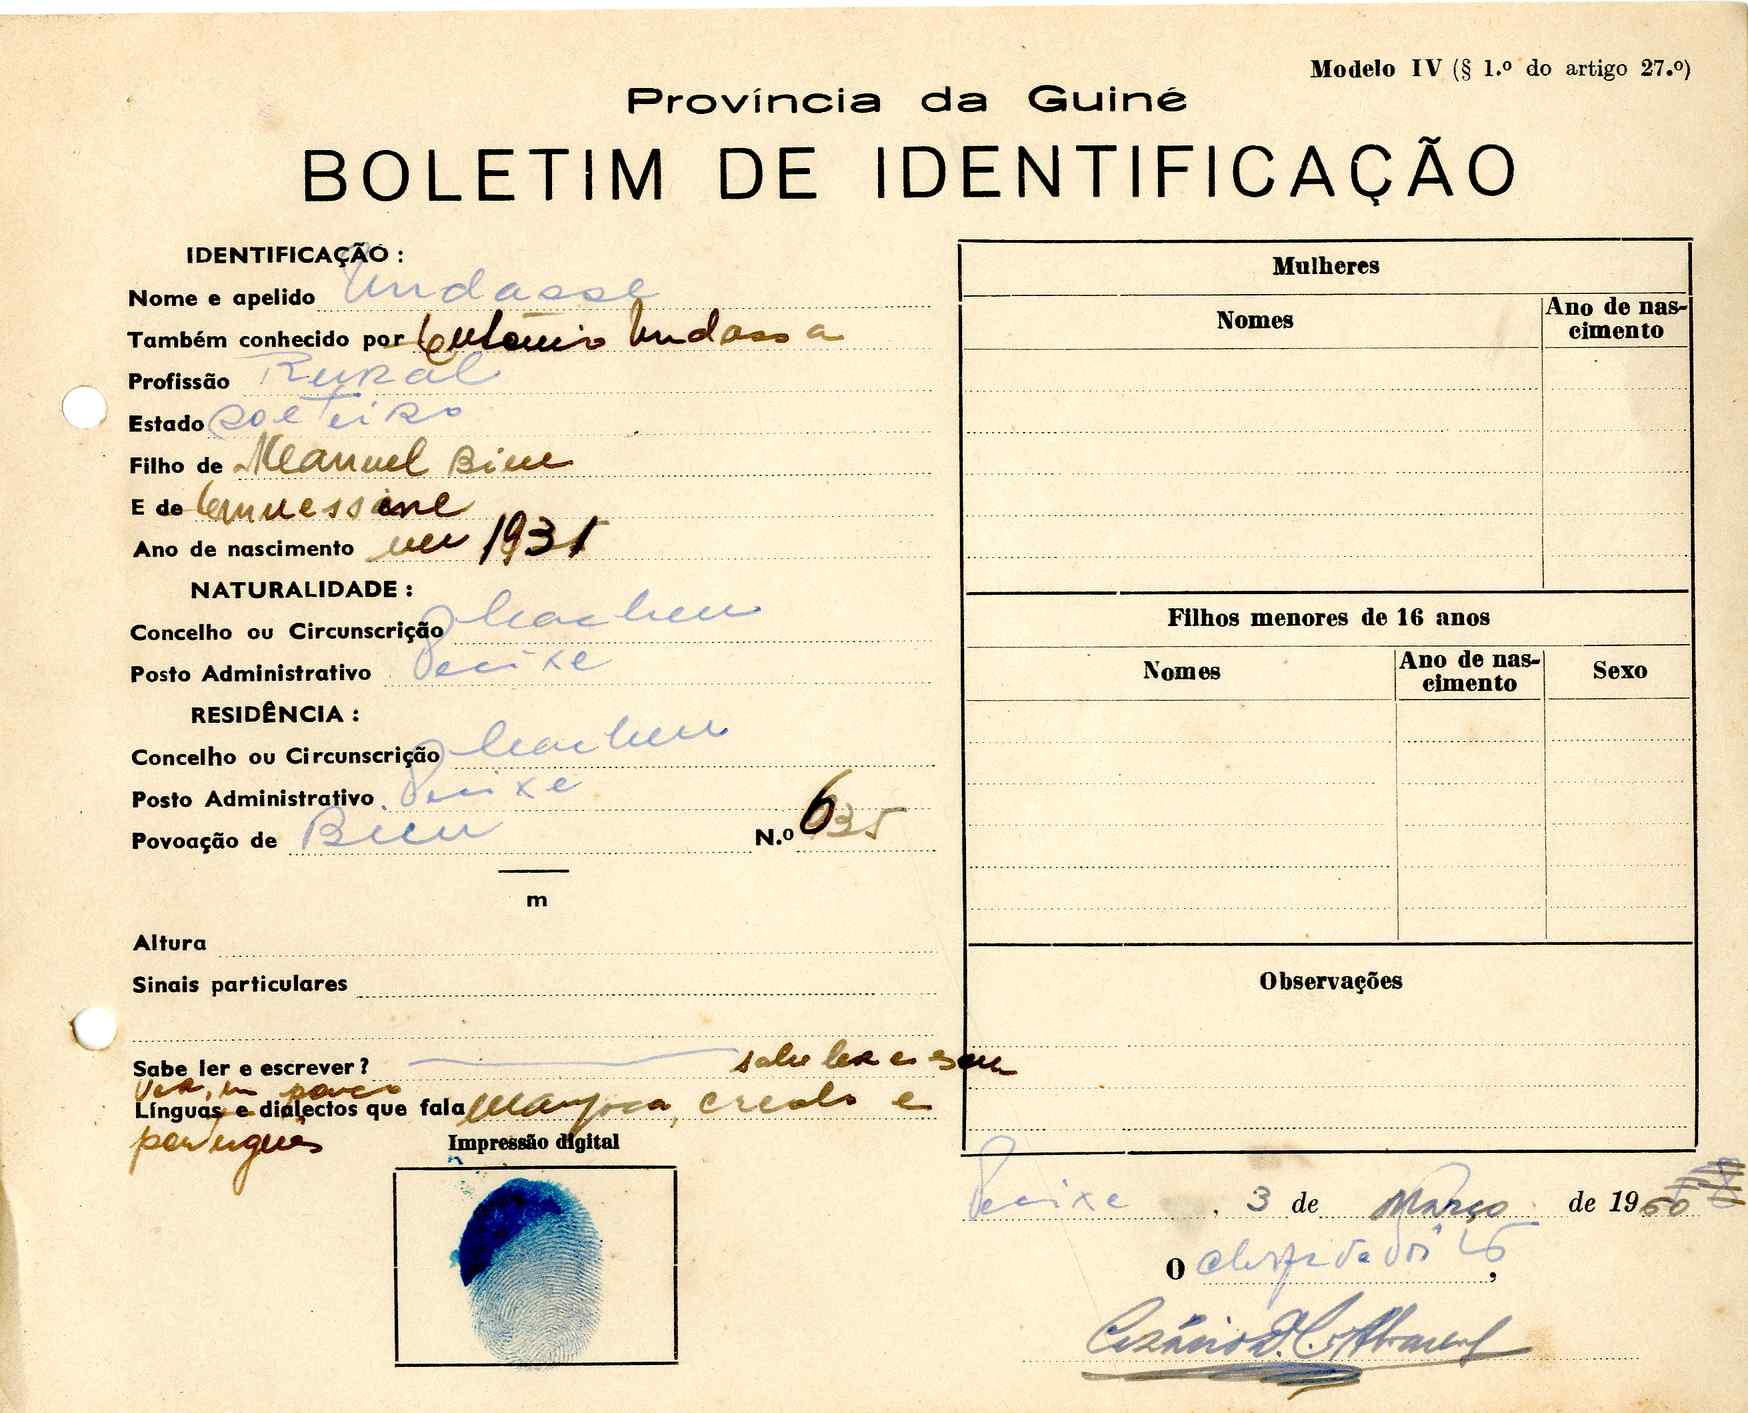 Modelo IV (§ 1.º do artigo 27.º)
Província da Guiné
BOLETIM DE IDENTIFICAÇÃO
IDENTIFICAÇÃO :
Nome e apelido Undasse
Também conhecido por António Undassa
Profissão Rural
Estado solteiro
Filho de Manuel Bieu
E de
Ano de nascimento em 1931
NATURALIDADE :
Concelho ou Circunscrição Cacheu
Posto Administrativo Pecixe
RESIDÊNCIA :
Concelho ou Circunscrição Cacheu
Posto Administrativo Pecixe
Povoação de Bieu N.º 635
m
Altura
Sinais particulares
Sabe ler e escrever? sabe ler e escre
ver, um pouco
Línguas e dialectos que fala Manjaca, creolo e
português
Impressão digital
Mulheres
Nomes
Ano de nas-
cimento
Filhos menores de 16 anos
Nomes
Ano de nas-
cimento
Sexo
Observações
Pecixe, 3 de Março de 1960
O chefe do Posto,